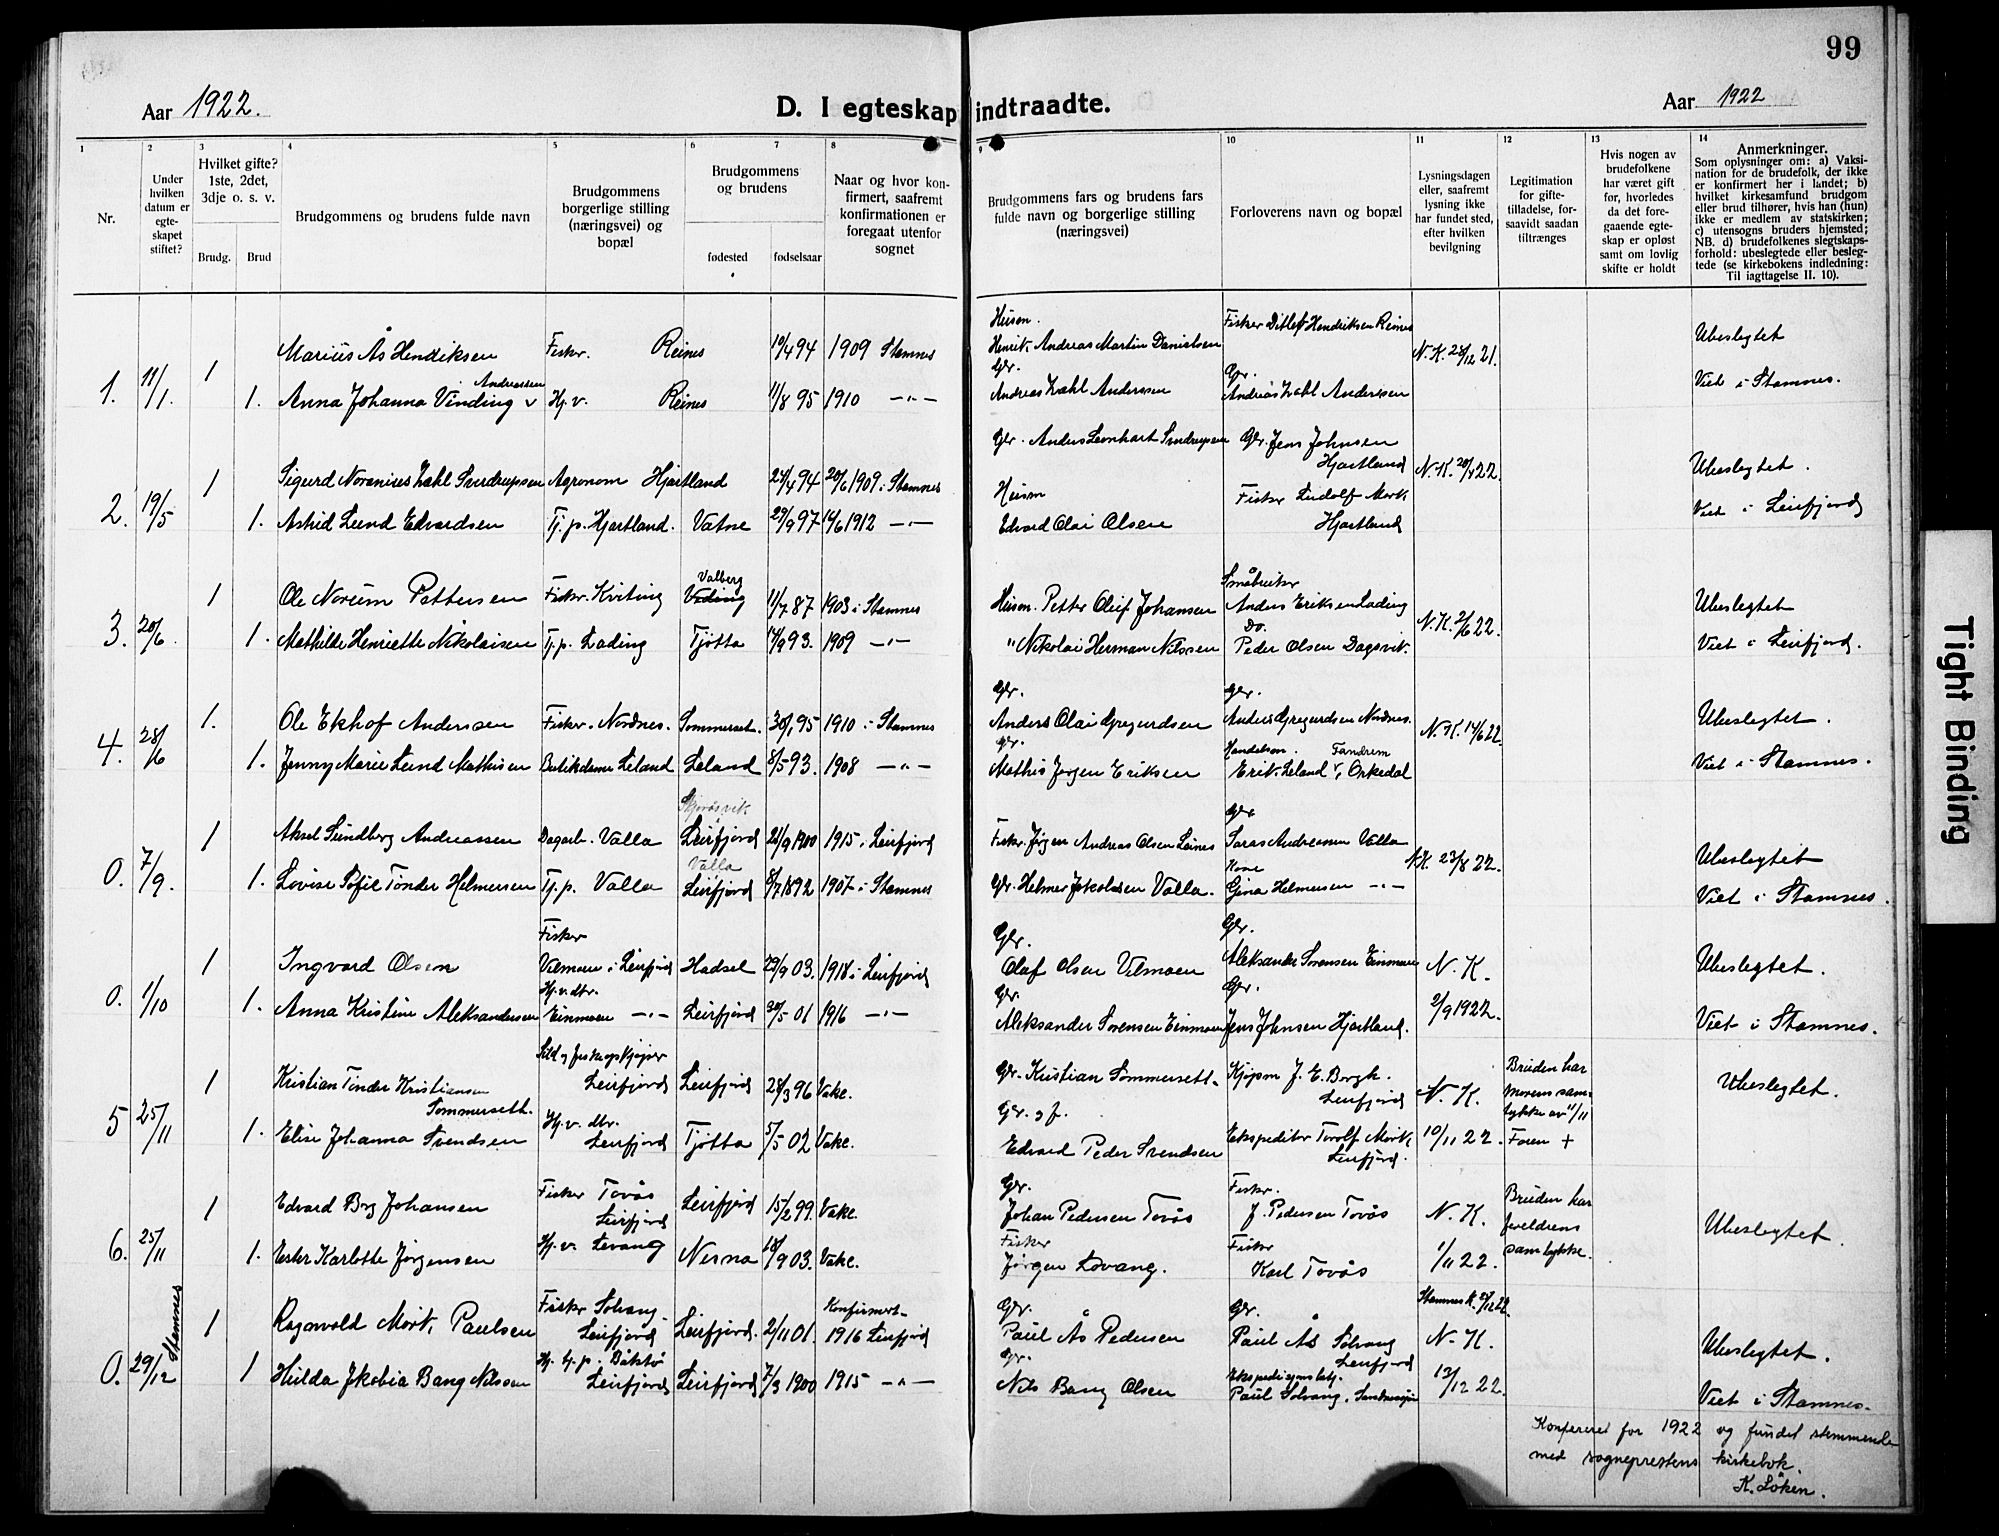 99
Aar 1922.
D. I egteskap indtraadte.
Aar 1922
1 2 3 4 5 6 7 8 9 10 11 12 13 14
Nr.
Under
hvilken
datum er
egte-
skapet
stiftet?
Hvilket gifte?
1ste, 2det,
3dje o. s. v.
Brudg. Brud
Brudgommens og brudens fulde navn
Brudgommens
borgerlige stilling
(næringsvei) og
bopæl
Brudgommens
og brudens
fødested fødselsaar
Naar og hvor kon-
firmert, saafremt
konfirmationen er
foregaat utenfor
sognet
Brudgommens fars og brudens fars
fulde navn og borgerlige stilling
(næringsvei)
Forloverens navn og bopæl
Lysningsdagen
eller, saafremt
lysning ikke
har fundet sted,
efter hvilken
bevilgning
Legitimation
for gifte-
tilladelse, for-
saavidt saadan
tiltrænges
Hvis nogen av
brudefolkene
har været gift
før, hvorledes
da det fore-
gaaende egte-
skap er opløst
samt om lovlig
skifte er holdt
Anmerkninger.
Som oplysninger om: a) Vaksi-
nation for de brudefolk, der ikke
er konfirmert her i landet; b)
hvilket kirkesamfund brudgom
eller brud tilhører, hvis han (hun)
ikke er medlem av statskirken;
c) utensogns bruders hjemsted;
NB. d) brudefolkenes slegtskaps-
forhold: ubeslegtede eller besleg-
tede (se kirkebokens indledning:
Til iagttagelse II. 10).
Husm. Fisker Ditlef Hendriksen Reines
1 Marius Ås Hendiksen Fisker. Reines 10/4 94 1909 Stamnes Henrik Andreas Martin Danielsen N.K. 28/12 21. Ubeslegtet
Andreassen Gbr. Gbr.
1. 11/1. 1. Anna Johanna Vinding Hj.v. Reines 11/8 95 1910 —"— Andreas Zahl Anderssen Andreas Zahl Anderssen Viet i Stamnes.
Gbr. Anders Leonhart Sverdrupsen Gbr. Jens Johnsen
1 Sigurd Zahl Sverdrupsen Agronom Hjartland 24/4 94 20/6 1909 i Stamnes Hjartland N.K. 20/4 22. Ubeslegtet.
Husm Fisker Ludolf Mørk
2. 19/5 1. Astrid Lund Edvardsen Tj.p. Hjartland. Vatne 27/9 97 16/6 1912 —"— Edvard Olai Olsen Hjartland Viet i Leirfjord
Valberg Småbruker
1 Ole Norum Pettersen Fisker. Kviting 11/7 87 1903 i Stamnes Husm. Petter Oluf Johansen Anders Eriksen Lading N.K. 2/6 22. Ubeslegtet
Do.
3. 20/6. 1. Mathilde Henriette Nikolaisen Tj.p. Lading Tjötta 14/9 93. 1909 —"— " Nikolai Herman Nilssen Peder Olsen Dagsvik. Viet i Leirfjord.
Gbr. Gbr.
1. Ole Ekhof Anderssen Fisker. Nordnes. Sommerset. 30/1 95 1910 i Stamnes Anders Olai Gregersen Nordnes. N.K. 14/6 22. Ubeslegtet.
Gbr. Handelsm. Fandrem
4. 28/6 1. Jenny Marie Lund Mathisen Butikdame Leland Leland 8/5 93. 1908 —"— Mathis Jørgen Eriksen Erik Leland Orkedal Viet i Stamnes.
Gbr
1 Aksel Sundberg Andreassen Dagarb. Valla Leirfjord 21/9 1900 1915 i Leirfjord Fisker. Jørgen Andreas Olsen Leines Andreassen Valla N.K. 23/8 22. Ubeslegtet
Valla Kone
0. 7/9. 1. Lovise Tønder Helmersen Tj.p. Valla Leirfjord 8/7 1892 1907 i Stamnes Gbr. Helmer Jakobsen Valla. Gina Helmersen —"— Viet i Stamnes.
Fisker Gbr. Gbr.
1 Ingvard Olsen Ulmoen i Leirfjord Hadsel 29/9 03. 1918 i Leirfjord Olaf Olsen Ulmoen Aleksander Sørensen Einmoen N.K. Ubeslegtet.
Hj.v.dtr. Gbr. Gbr.
0. 1/10 1. Anna Kristine Aleksandersen Einmoen —"— Leirfjord 20/5 01 1916 —"— Aleksander Sørensen Einmoen Jens Johnsen Hjartland. 2/9 1922. Viet i Stamnes.
1 Kristian Tønder Kristiansen Leirfjord Leirfjord 28/3 96 Vake. Gbr. Kristian Sommersett. Kjøpm J. E. Borgh. Bruden har
Sommerseth. Leirfjord N.K. morens sam- Ubeslegtet.
Hj.v. dtr. Gbr. og f. tykke av 11/11
5 25/11 1. Elise Johanna Svendsen Leirfjord Tjøtta 5/5 02 Vake. Edvard Peder Svendsen Ekspeditør Torolf Mørk 10/11 22. Faren +
Leirfjord.
Fisker Tovås Gbr. Fisker. Bruden har
1 Edvard Borg Johansen Leirfjord Leirfjord 15/2 99. Vake. Johan Pedersen Tovås J. Pedersen Tovås N.K. foreldrens
Fisker Fisker samtykke. Ubeslegtet.
6. 25/11 1. Ester Karlotte Jørgensen Hj.v. Levang Nesna 18/9 03. Vake. Jørgen Levang. Karl Tovås 1/11 22.
Stamnes Fisker Solvang Konfirmert Gbr. Gbr. Stamnes K.
1 Ragnvald Mørk Paulsen Leirfjord Leirfjord. 2/11 01. 1916 Leirfjord Paul Ås Pedersen Paul Ås Solvang N.K. Ubeslegtet.
Gbr. Leirfjord
0. 29/12 1 Hulda Jkobia Bang Nilssen Leirfjord Leirfjord 7/3 1900 1915 —"— Nils Bang Olsen Paul Solvang. 13/12 22. Viet i Stamnes.
Konfereret for 1922 og fundet stemmende
med sogneprestens kirkebok.
K. Løken.
Tight Binding